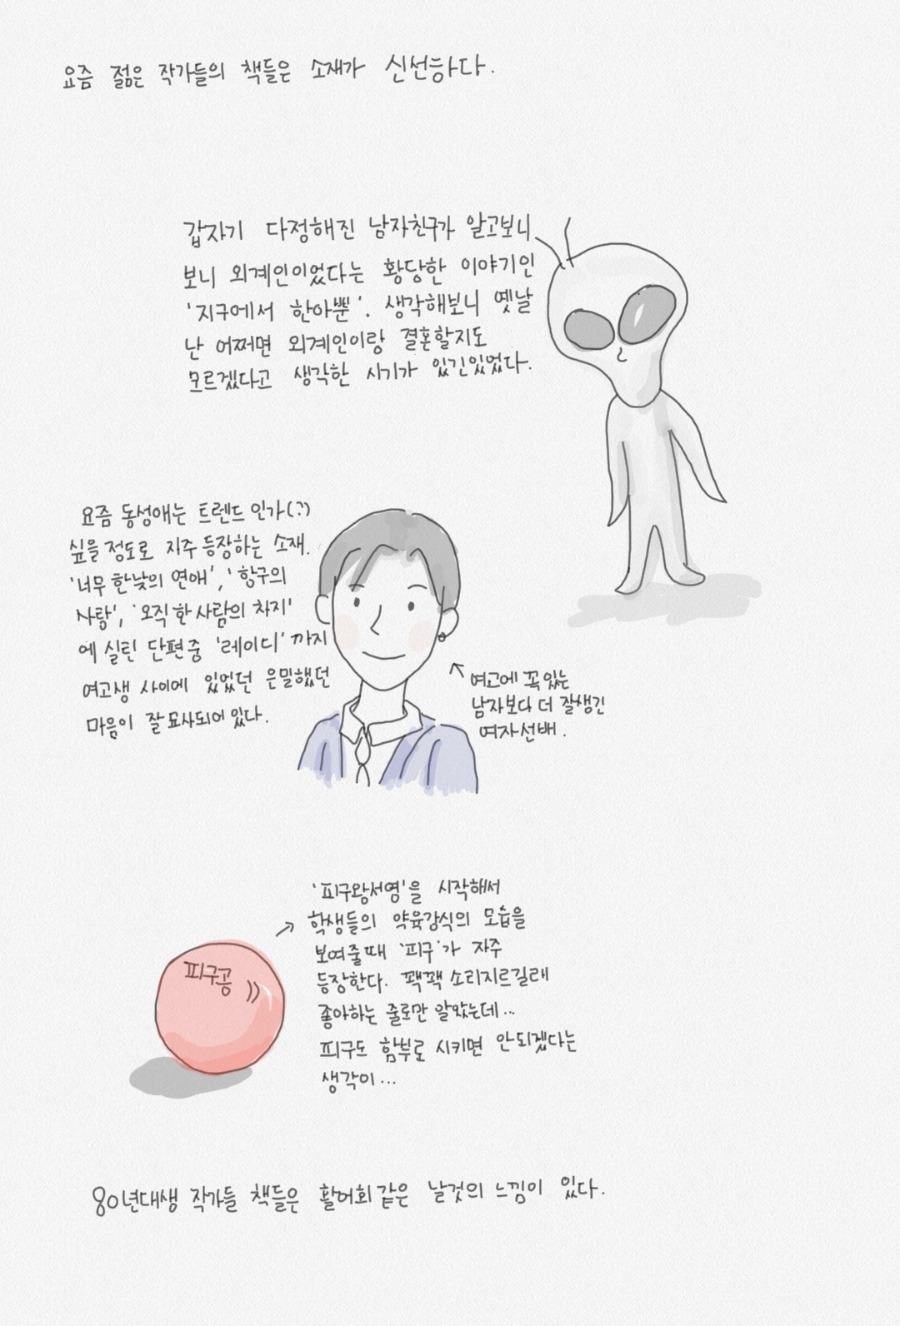 요즘 젊은 작가들의 책들은 소재가 신선하다.
갑자기 다정해진 남자친구가 알고보니
보니 외계인이었다는 황당한 이야기인
'지구에서 한아뿐'. 생각해보니 옛날
난 어쩌면 외계인이랑 결혼할지도
모르겠다고 생각한 시기가 있긴있었다.
요즘 동성애는 트렌드인가(?)
싶을 정도로 자주 등장하는 소재.
'너무 한낮의 연애', '항구의
사랑', '오직 한 사람의 차지'
에 실린 단편중 '레이디' 까지
여고생 사이에 있었던 은밀했던
마음이 잘 묘사되어 있다.
여고에 꼭 있는
남자보다 더 잘생긴
여자선배.
'피구왕서영'을 시작해서
학생들의 약육강식의 모습을
보여줄때 '피구'가 자주
등장한다. 꽥꽥 소리지르길래
좋아하는 줄로만 알았는데...
피구도 함부로 시키면 안되겠다는
생각이...
피구공
80년대생 작가들 책들은 활어회같은 날것의 느낌이 있다.